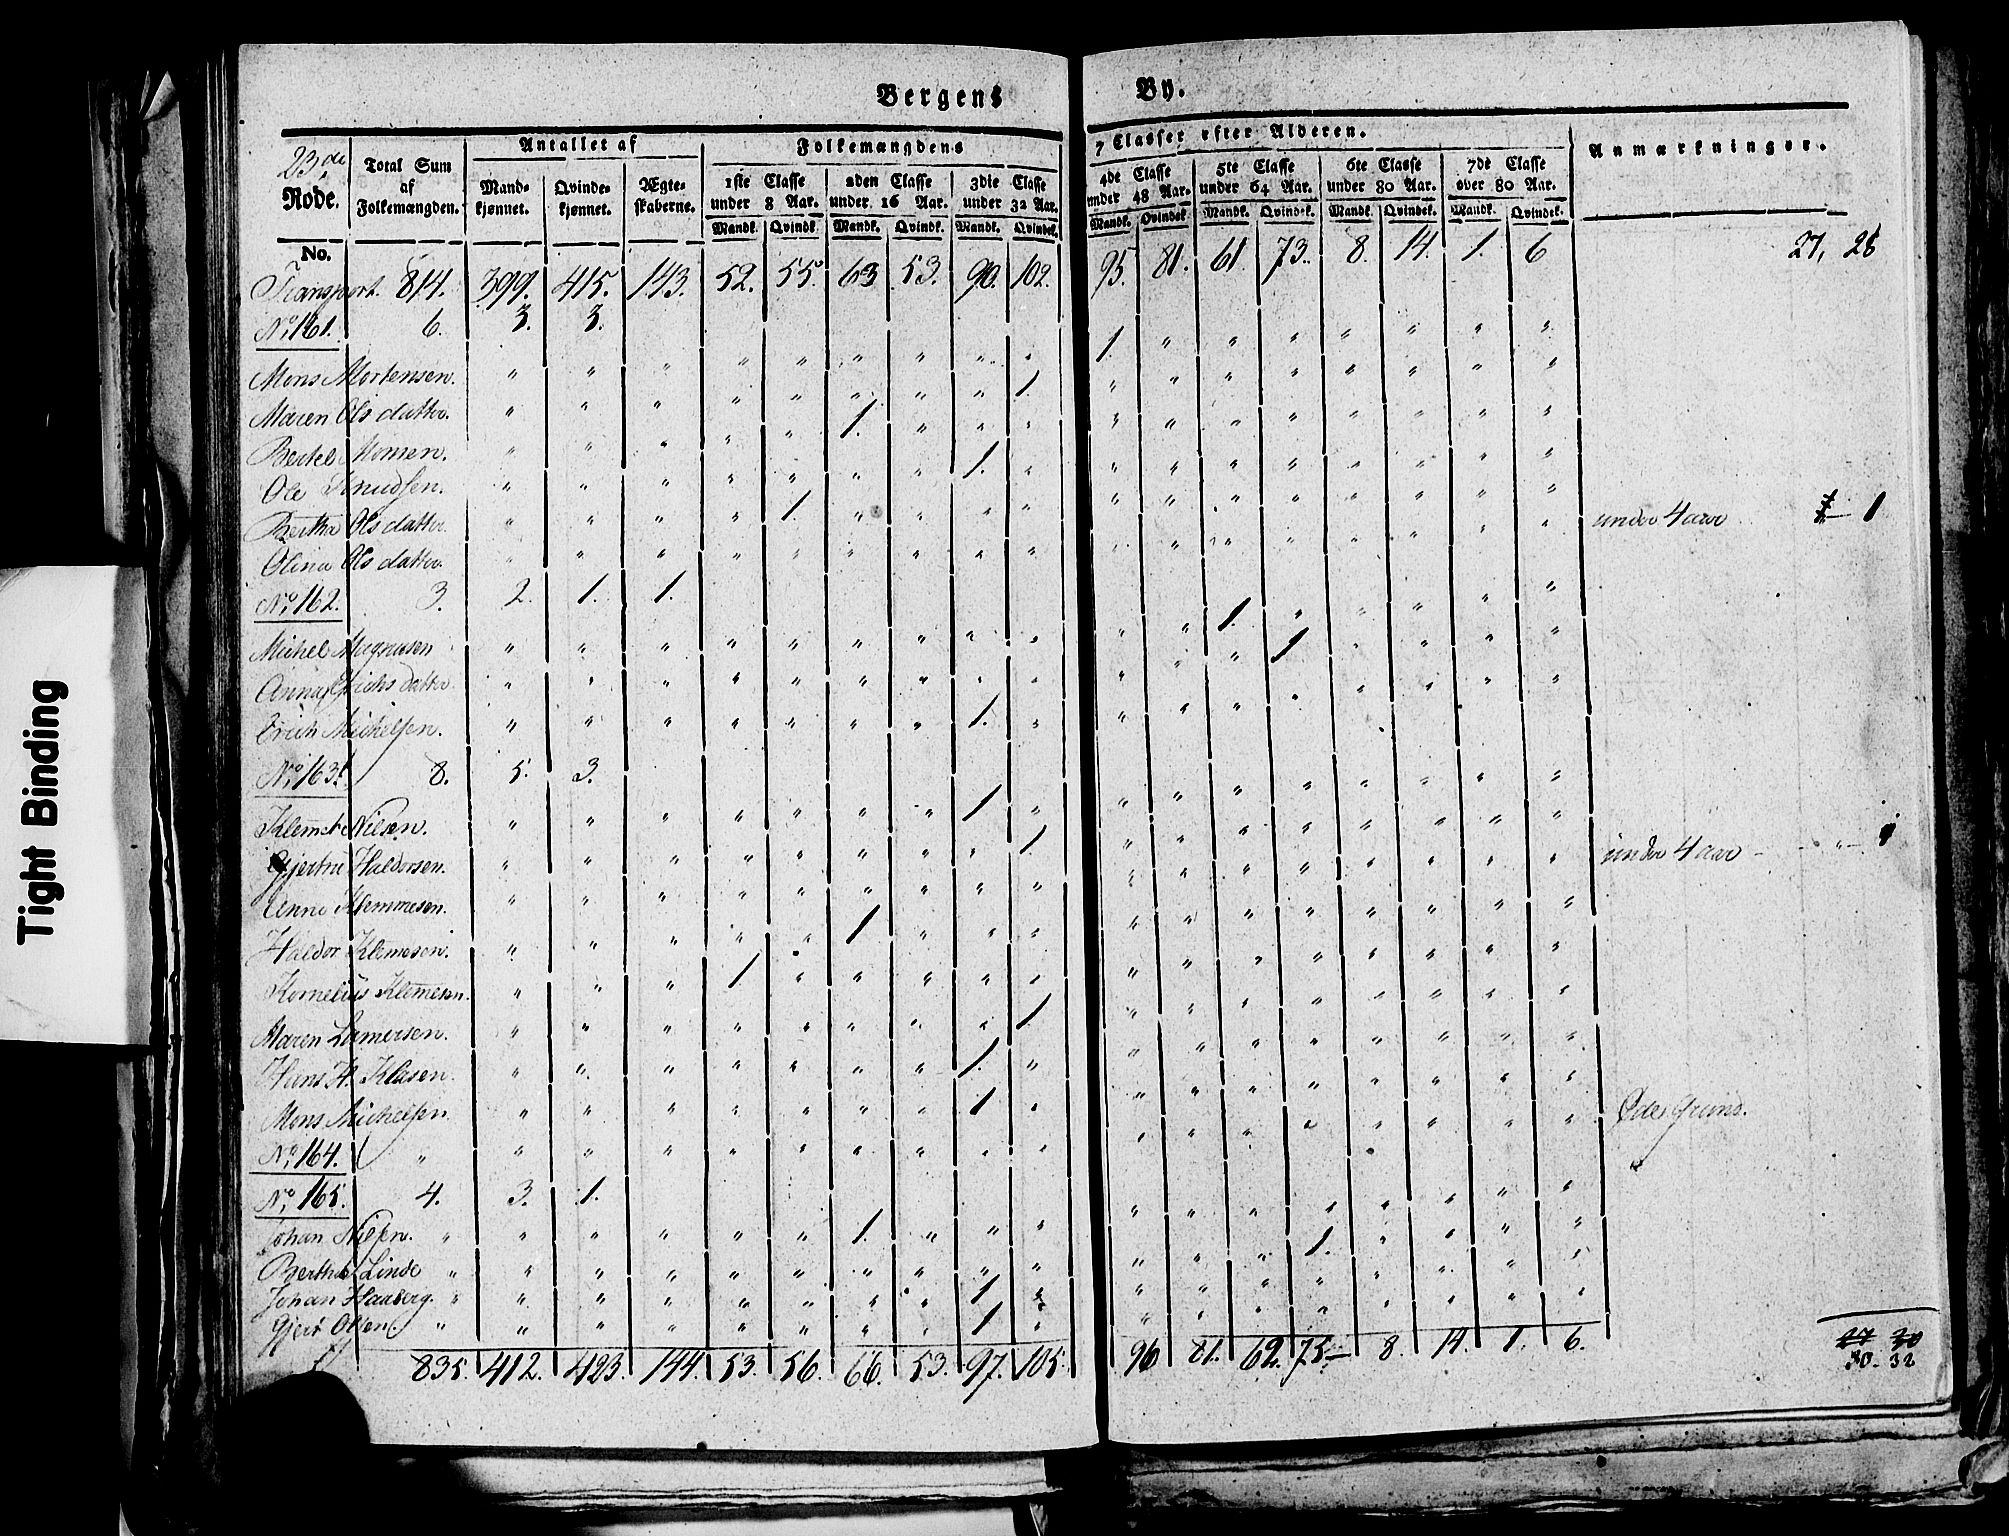 Tight Binding
Bergens By.
23de Rode.
Total Sum af Folkemængden.
Antallet af
Mandkjønnet. Qvindekjønnet. Ægteskaberne.
Folkemængdens 7 Classer efter Alderen.
1ste Classe under 8 Aar. 2den Classe under 16 Aar. 3die Classe under 32 Aar. 4de Classe under 48 Aar. 5te Classe under 64 Aar. 6te Classe under 80 Aar. 7de Classe over 80 Aar.
Anmærkninger.
Mandk. Qvindk. Mandk. Qvindk. Mandk. Qvindek. Mandk. Qvindek. Mandk. Qvindek. Mandk. Qvindek. Mandk. Qvindek.
No.
Transport. 814. 399. 415. 143. 52. 55. 63 53. 90. 102. 95. 81. 61. 73. 8. 14. 1. 6 27,
No. 161. 6. 3. 3.
Mons Mortensen. " " " " " " " " " 1. " " " " " " "
Maren Olsdatter. " " " " " " " " 1. " " " " " " " "
Bertel Monsen. " " " " " 1. " " " " " " " " " " "
Ole Knudsen. " " " " " " " 1. " " " " " " " " "
Bertha Olsdatter. " " " " 1. " " " " " " " " " " " " under 4 aar 1
Olina Olsdatter. " " " " " " " " " " " " " " " "
No. 162. 3. 2. 1. 1.
Michel Magnusen " " " " " " " " " " " 1. " " " " "
Anna Erichsdatter. " " " " " " " " " " " " 1 " " " "
Erich Michelsen. " " " " " " " 1. " " " " " " " " "
No. 163. 8. 5. 3.
Klemet Nilsen. " " " " " " " 1 " " " " " " " " "
Gjertru Haldorsen. " " " " " " " " 1. " " " " " " " " under 4 aar "
Anne Klemmesen. " " " " " " " " " " " " " " " " "
Haldor Klemesen. " " " " " 1 " " " " " " " " " " "
Kornelius Klemesen. " " " 1 " " " " " " " " " " " " "
Maren Lamersen. " " " " " " " " 1 " " " " " " " "
Hans H. Klasen. " " " " " " " 1. " " " " " " " " "
Mons Michelsen. " " " " " " " 1 " " " " " " " " "
No. 164. " " " " " " " " " " " " " " " " " " Øde Grund.
No. 165. 4. 3. 1.
Johan Nilsen. " " " " " " 1. " " " " " " " " " " "
Berthe Linde " " " " " " " " " " " " " 1. " " " "
Johan Haaberg. " " " " " " " " 1 " " " " " " " " "
Gjert Olsen. " " " " " " " " 1 " " " " " " " " "
835. 412. 423. 144. 53. 56. 66. 53. 97. 105. 96 81. 62. 75.- 8. 14. 1. 6.
30. 32